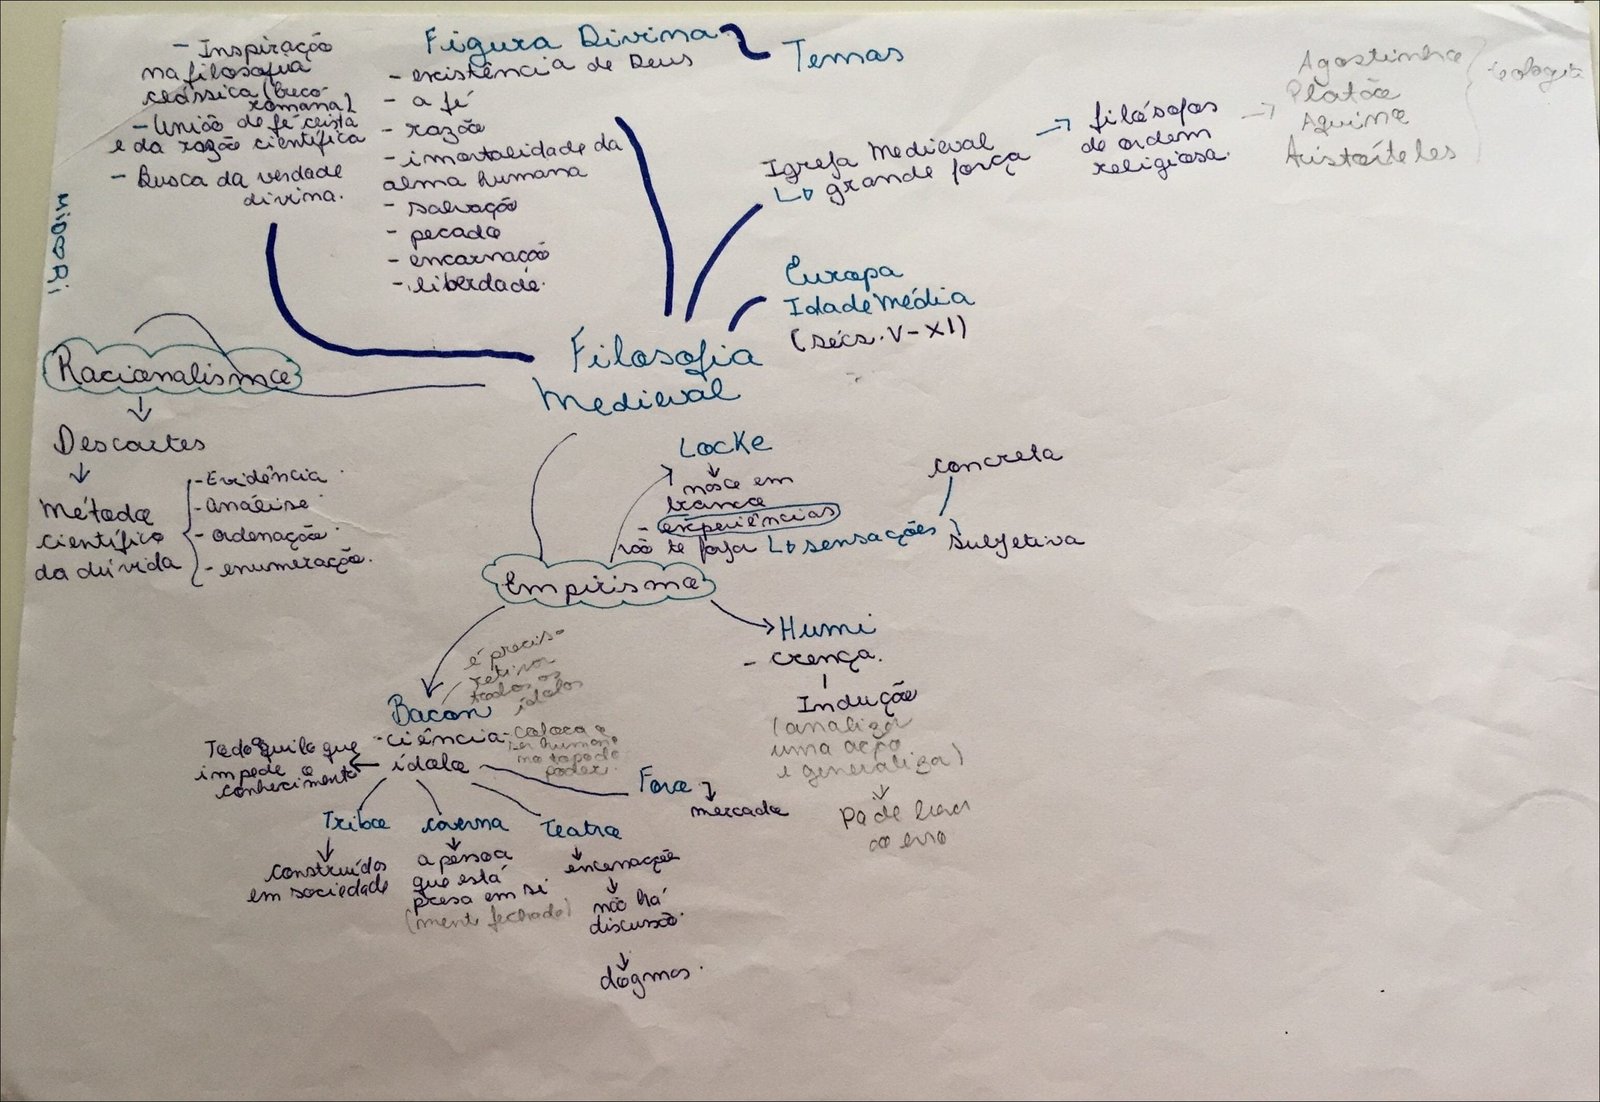 - Inspiração
na filosofia
clássica (Greco-
romana)
- União de fé cristã
e da razão científica
- Busca da verdade
divina.
MIDORI
Figura Divina
Temas
- existência de Deus
- a fé
- razão
- imortalidade da
alma humana
- salvação
- pecado
- encarnação
- liberdade.
Igreja Medieval
grande força
filósofos
de ordem
religiosa.
Agostinho
Platão
Aquino
Aristóteles
teologia
Europa
Idade Média
(sécs. V-XI)
Filosofia
Medieval
Racionalismo
Descartes
Método
científico
da dúvida
- Evidência
- análise
- ordenação
- enumeração.
Locke
nasce em
branco
- experiências
sensações
concreta
subjetiva
Empirismo
Humi
- crença.
Indução
(analizar
uma ação
e generaliza)
Pode levar
ao erro
Bacon
é preciso
retirar
todos os
ídolos
- ciência - coloca o
ser humano
no topo do
poder.
ídolo
Todo aquilo que
impede o
conhecimento
Tribo
construídos
em sociedade
caverna
a pessoa
que está
presa em si
(mente fechada)
Teatro
encenação
não há
discussão.
dogmas.
Foro
mercado